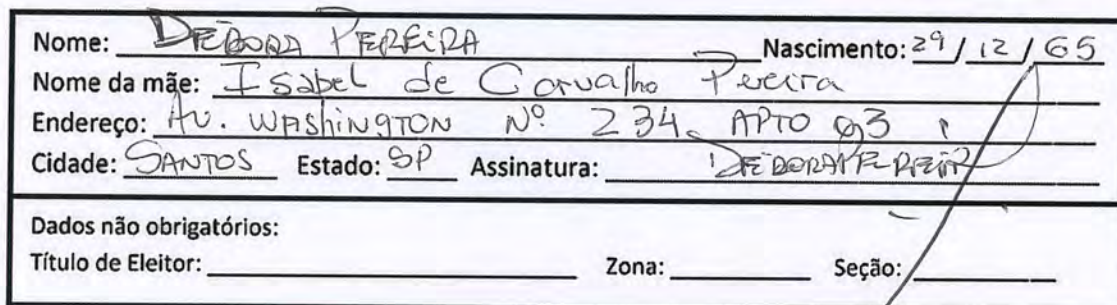 Nome: DEBORA PEREIRA Nascimento: 29/12/65
Nome da mãe: Isabel de Carvalho Pereira
Endereço: AV. WASHINGTON Nº 234 APTO 93
Cidade: SANTOS Estado: SP Assinatura: DEBORA PEREIRA
Dados não obrigatórios:
Título de Eleitor: Zona: Seção: